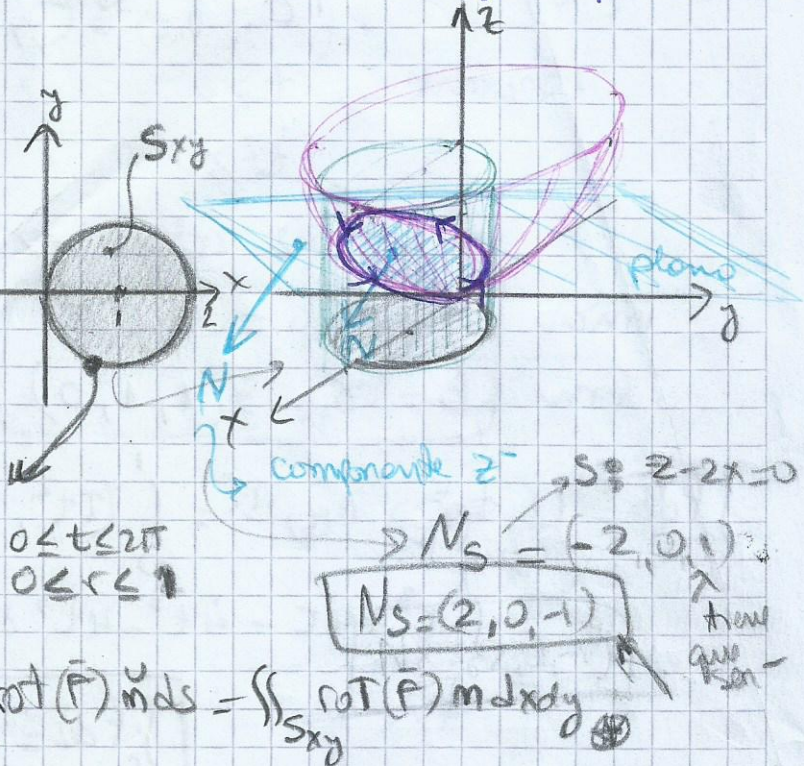 z
y
Sxy
x
1
2
plano
y
N
N
x
componente z⁻
S: z-2x=0
0≤t≤2π
0≤r≤1
N_S = (-2,0,1)
N_S=(2,0,-1)
tiene
que
ser -
rot(F̄) n̆ ds = ∬_Sxy rot(F̄) n dxdy